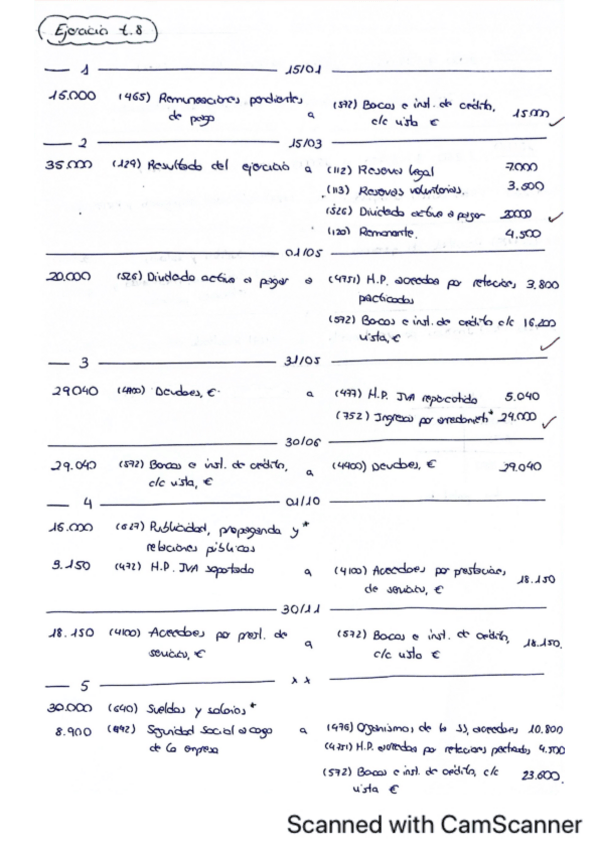 Ejercicio t.8
1 15/01
15.000 (465) Remuneraciones pendientes de pago a (572) Bancos e inst. de crédito, c/c vista € 15.000
2 15/03
35.000 (129) Resultado del ejercicio a (112) Reserva legal 7.000
(113) Reservas voluntarias. 3.500
(526) Dividendo activo a pagar 20000
(120) Remanente. 4.500
01/05
20.000 (526) Dividendo activo a pagar a (4751) H.P. acreedora por retenciones practicadas 3.800
(572) Bancos e inst. de crédito c/c vista, € 16.200
3 31/05
29040 (4400) Deudores, € a (477) H.P. IVA repercutido 5.040
(752) Ingresos por arrendamient* 24.000
30/06
29.040 (572) Bancos e inst. de crédito, c/c vista, € a (4400) Deudores, € 29.040
4 01/10
15.000 (627) Publicidad, propaganda y* relaciones públicas
3.150 (472) H.P. IVA soportado a (4100) Acreedores por prestaciones de servicios, € 18.150
30/11
18.150 (4100) Acreedores por prest. de servicios, € a (572) Bancos e inst. de crédito, c/c vista € 18.150.
5 x x
30.000 (640) Sueldos y salarios*
8.900 (642) Seguridad Social a cargo de la empresa a (476) Organismos de la SS, acreedores 10.800
(4751) H.P. acreedora por retenciones practicadas 4.500
(572) Bancos e inst. de crédito, c/c vista € 23.600.
Scanned with CamScanner